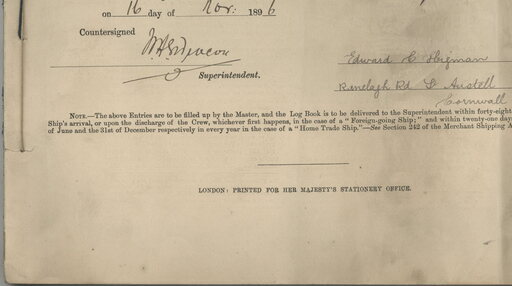 on 16 day of Nov: 1896
Countersigned
Superintendent.
Edward C Higman
Ranelagh Rd St Austell
Cornwall
NOTE.—The above Entries are to be filled up by the Master, and the Log Book is to be delivered to the Superintendent within forty-eight
Ship's arrival, or upon the discharge of the Crew, whichever first happens, in the case of a "Foreign-going Ship;" and within twenty-one day
of June and the 31st of December respectively in every year in the case of a "Home Trade Ship."—See Section 242 of the Merchant Shipping A
LONDON: PRINTED FOR HER MAJESTY'S STATIONERY OFFICE.